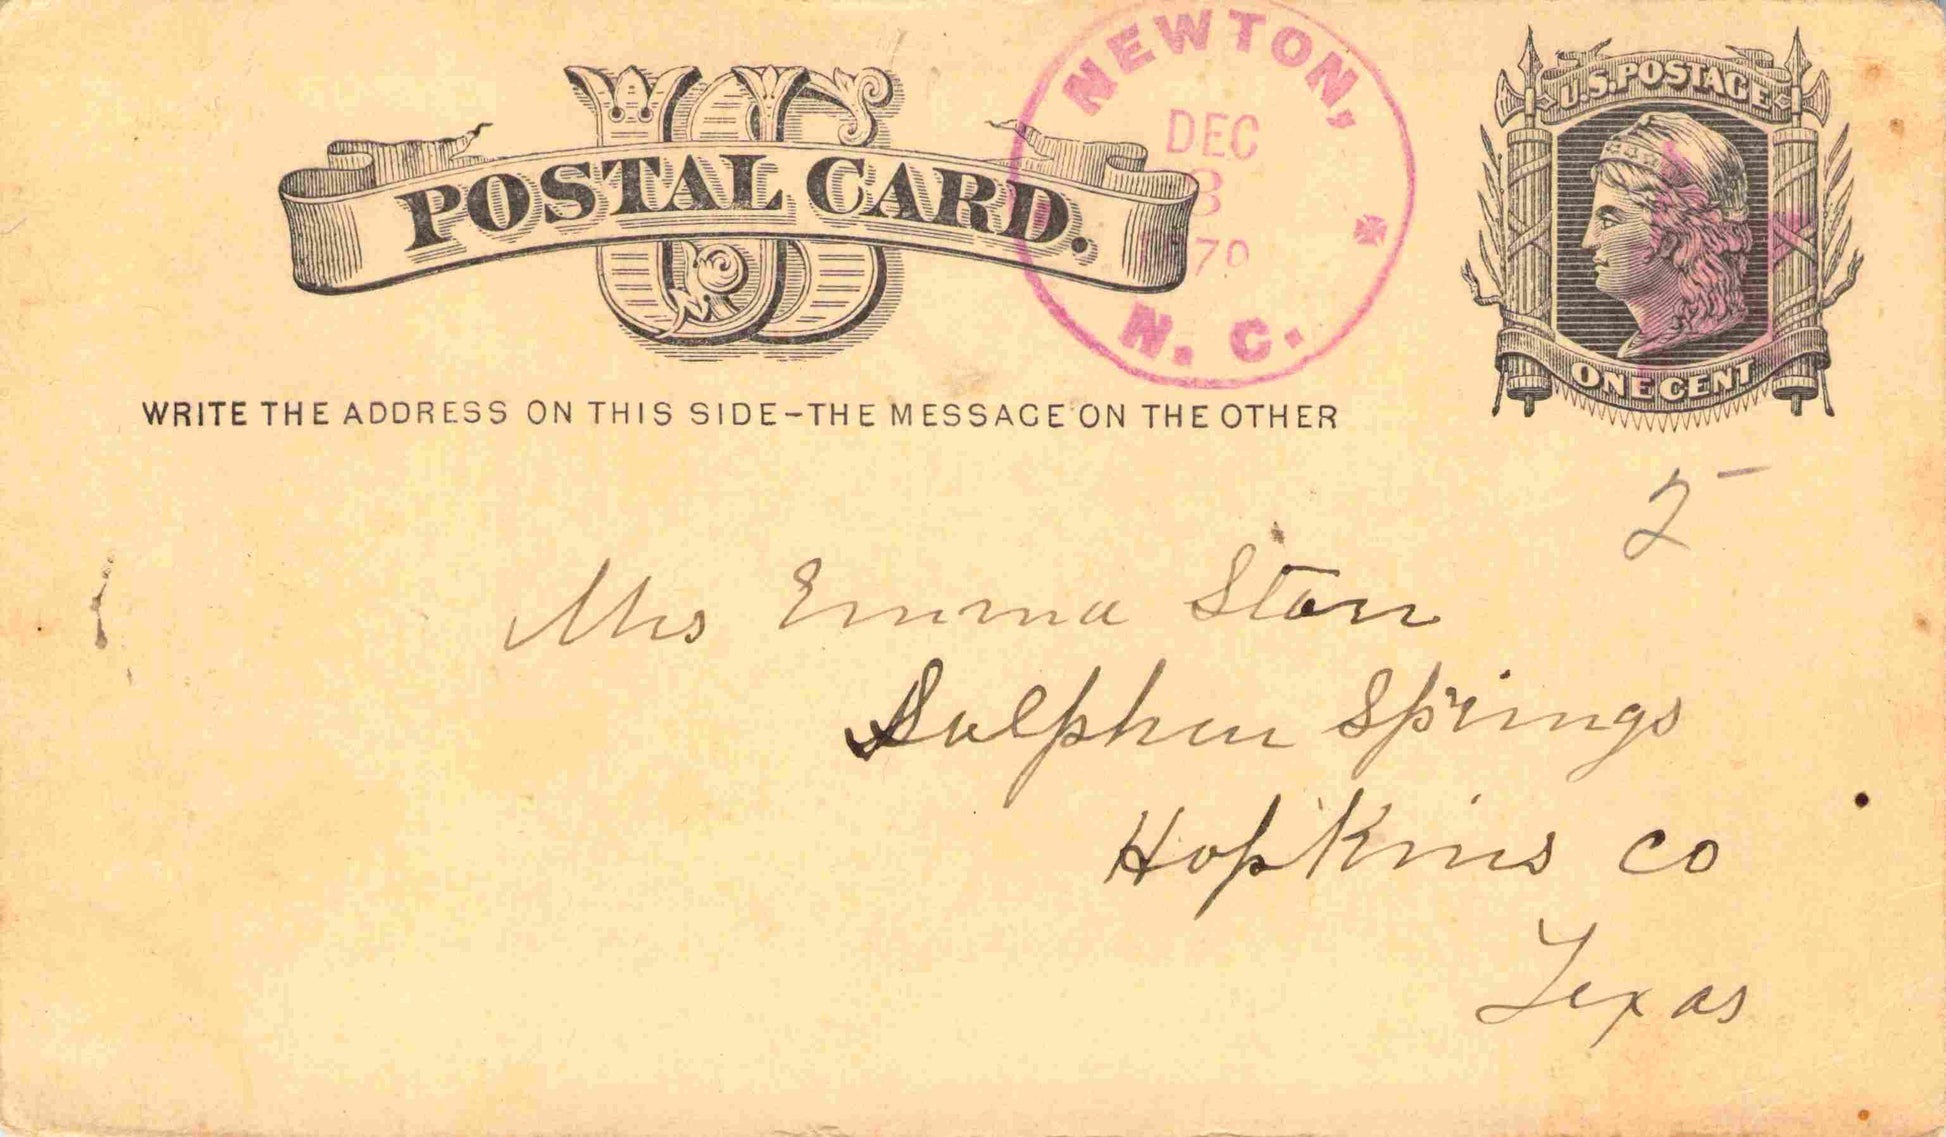 US
POSTAL CARD.
NEWTON,
DEC
8
1879
N. C.
U.S. POSTAGE
ONE CENT
WRITE THE ADDRESS ON THIS SIDE-THE MESSAGE ON THE OTHER
Mrs Emma Starr
Sulpher Springs
Hopkins co
Texas